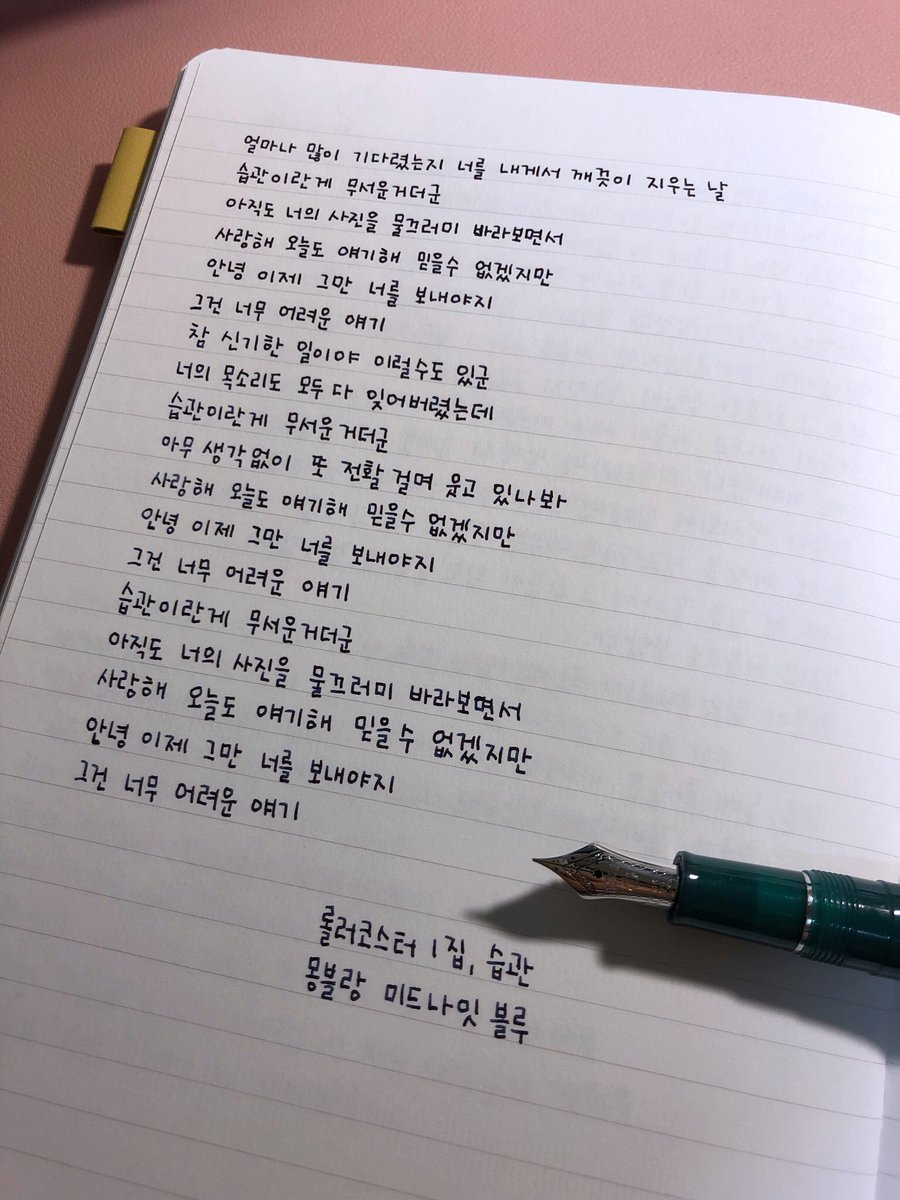 얼마나 많이 기다렸는지 너를 내게서 깨끗이 지우는 날
습관이란게 무서운거더군
아직도 너의 사진을 물끄러미 바라보면서
사랑해 오늘도 얘기해 믿을수 없겠지만
안녕 이제 그만 너를 보내야지
그건 너무 어려운 얘기
참 신기한 일이야 이럴수도 있군
너의 목소리도 모두 다 잊어버렸는데
습관이란게 무서운거더군
아무 생각없이 또 전활 걸며 웃고 있나봐
사랑해 오늘도 얘기해 믿을수 없겠지만
안녕 이제 그만 너를 보내야지
그건 너무 어려운 얘기
습관이란게 무서운거더군
아직도 너의 사진을 물끄러미 바라보면서
사랑해 오늘도 얘기해 믿을수 없겠지만
안녕 이제 그만 너를 보내야지
그건 너무 어려운 얘기
롤러코스터 1집, 습관
몽블랑 미드나잇 블루